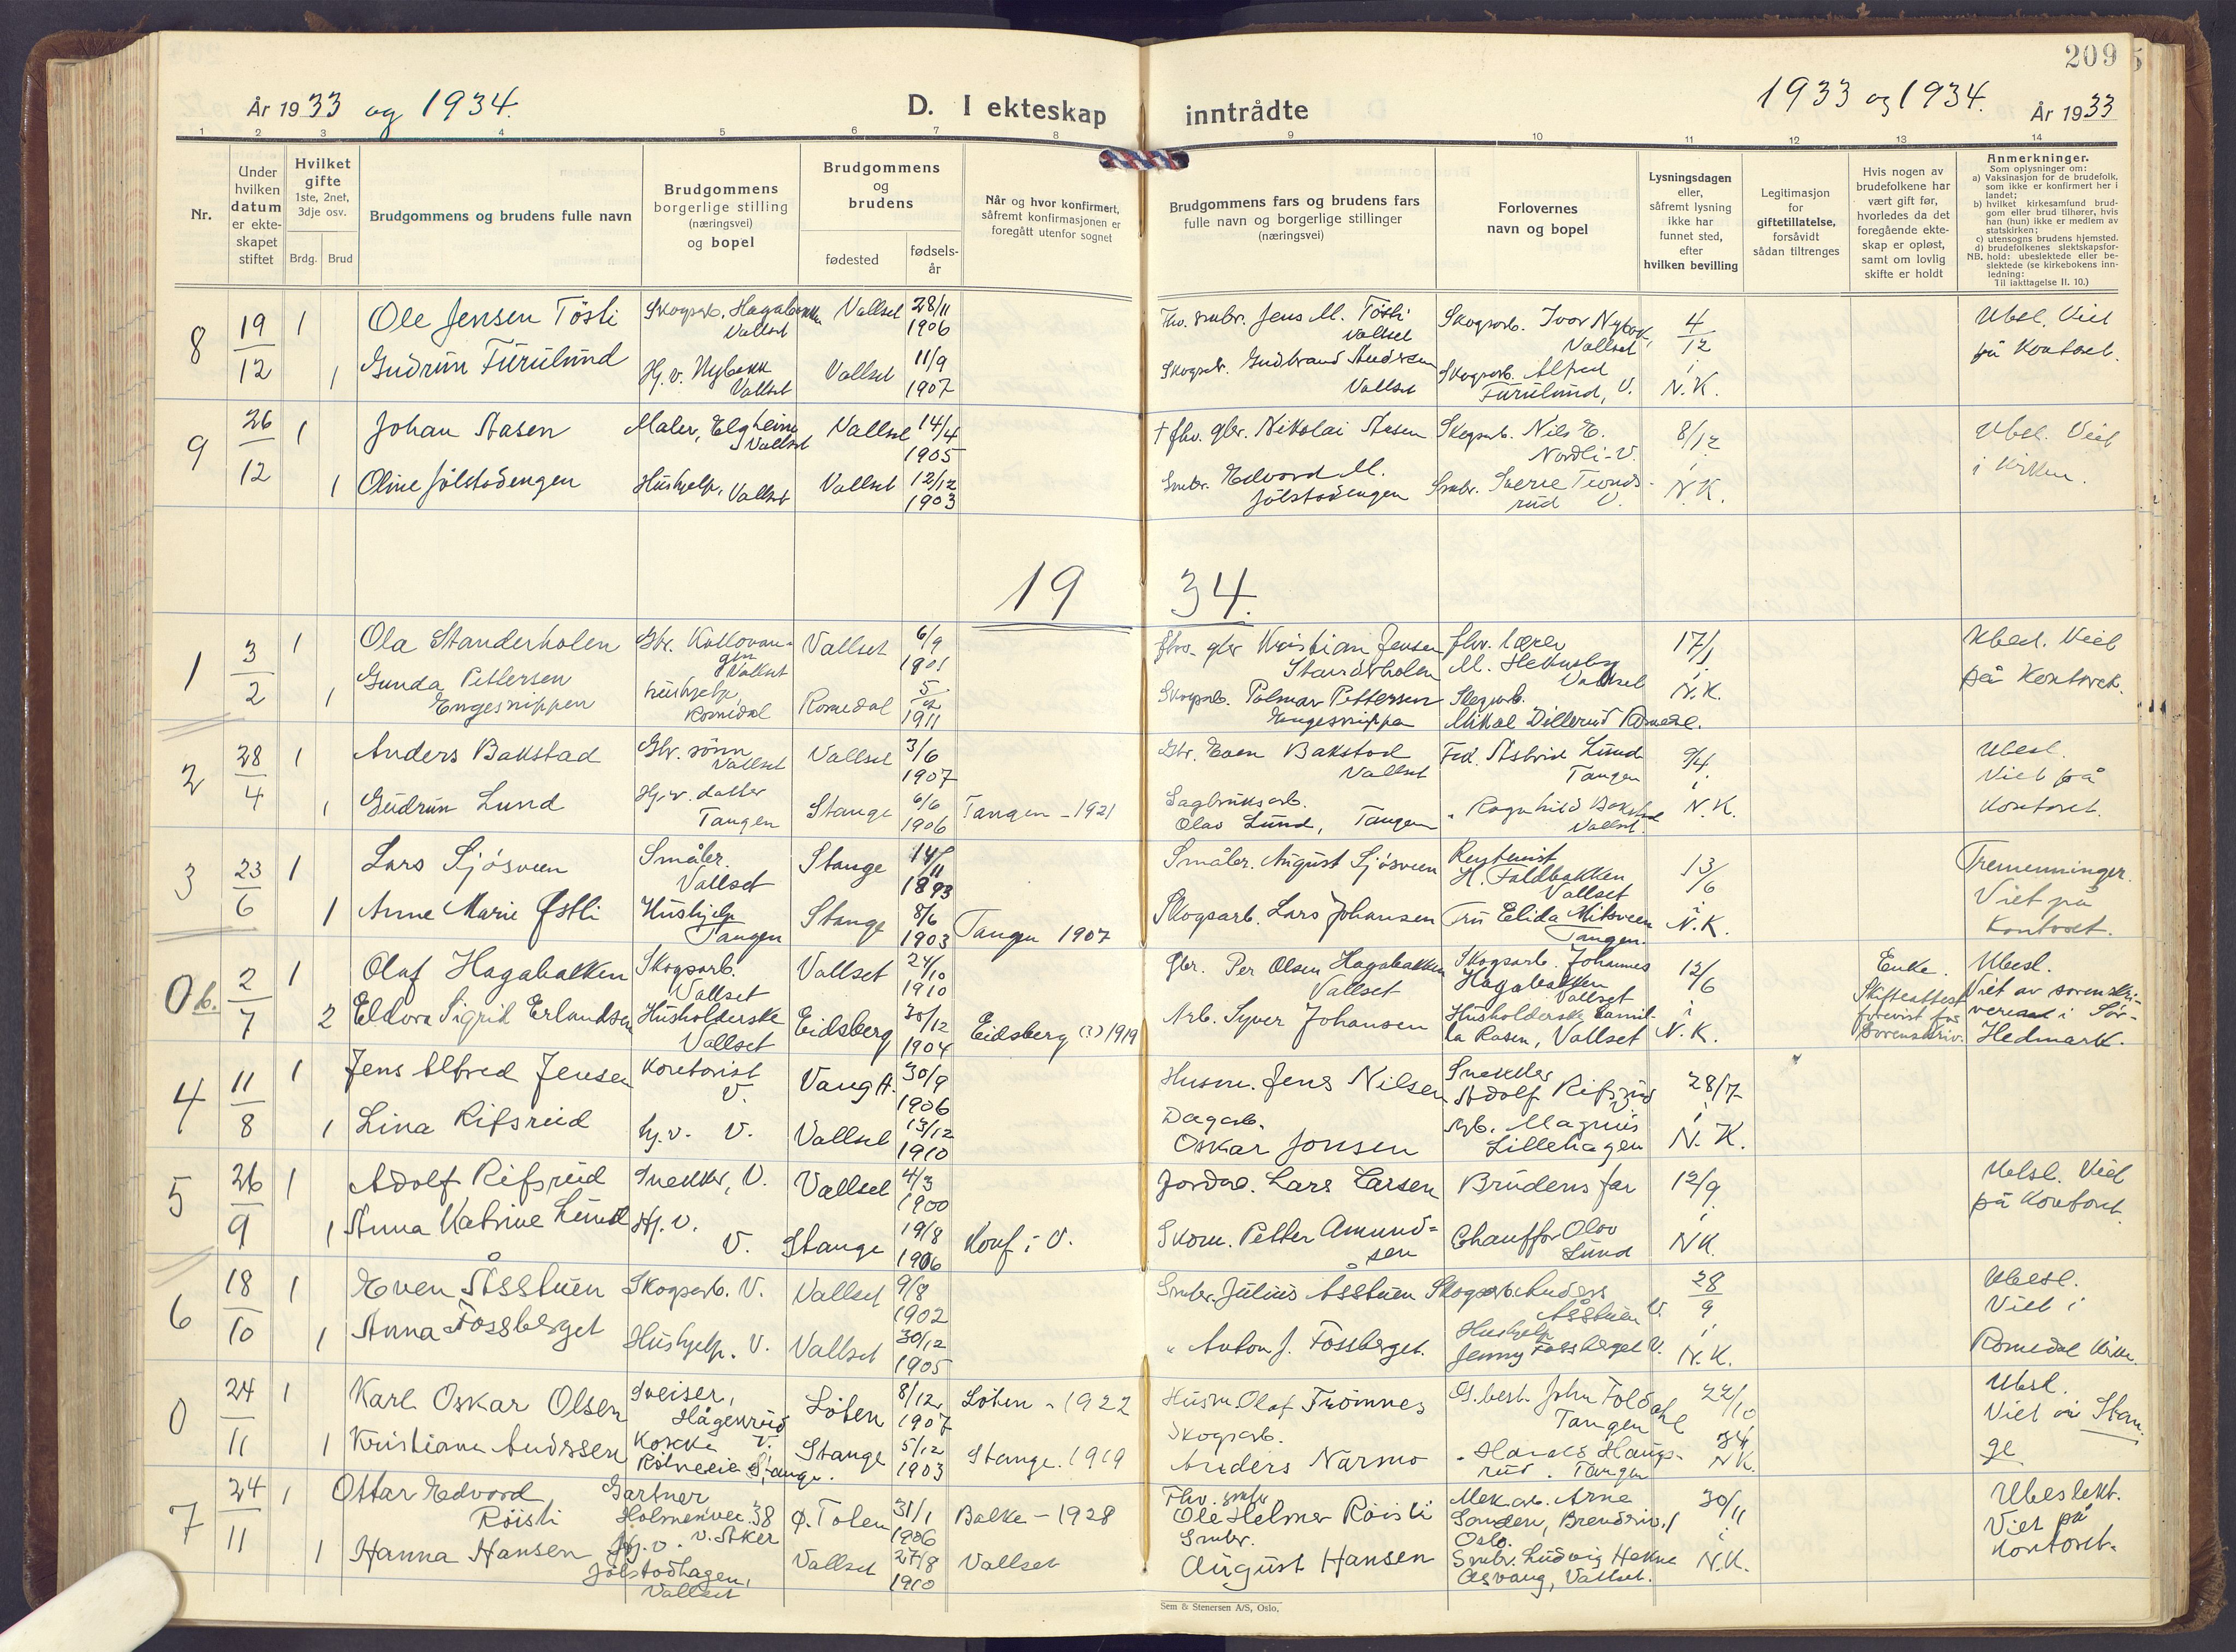 209
År 1933 og 1934.
D. I ekteskap inntrådte
1933 og 1934. År 1933
1 2 3 4 5 6 7 8 9 10 11 12 13 14
Nr.
Under hvilken datum er ekteskapet stiftet
Hvilket gifte
1ste, 2net, 3dje osv.
Brdg. Brud
Brudgommens og brudens fulle navn
Brudgommens borgerlige stilling (næringsvei) og bopel
Brudgommens og brudens
fødested
fødsels-år
Når og hvor konfirmert, såfremt konfirmasjonen er foregått utenfor sognet
Brudgommens fars og brudens fars fulle navn og borgerlige stillinger (næringsvei)
Forlovernes navn og bopel
Lysningsdagen eller, såfremt lysning ikke har funnet sted, efter hvilken bevilling
Legitimasjon for giftetillatelse, forsåvidt sådan tiltrenges
Hvis nogen av brudefolkene har vært gift før, hvorledes da det foregående ekteskap er opløst, samt om lovlig skifte er holdt
Anmerkninger.
Som oplysninger om:
a) Vaksinasjon for de brudefolk, som ikke er konfirmert her i landet;
b) hvilket kirkesamfund brudgom eller brud tilhører, hvis han (hun) ikke er medlem av statskirken;
c) utensogns brudens hjemsted.
d) brudefolkenes slektskapsforhold: ubeslektede eller beslektede (se kirkebokens innledning:
NB.
Til iakttagelse II. 10.)
8 19/12 1 Ole Jensen Tösti Skogsarb. Hagabakken Vallset Vallset 28/11 1906 Fhv. smbr. Jens M. Tösti Vallset Skogsarb. Ivar Nybak, Vallset 4/12 i N.K. Ubesl. Viet på kontoret.
1 Gudrun Furulund Hj. v. Nybakk Vallset Vallset 11/9 1907 Skogsarb. Gudbrand Andersen Vallset Skogsarb. Alfred Furulund, V.
9 26/12 1 Johan Aasen Maler, Elgheim Vallset Vallset 14/4 1905 † fhv. gbr. Nikolai Aasen Skogsarb. Nils E. Nordli - V. 8/12 i N.K. Ubesl. Viet i kirken.
1 Oline Jölstadengen Hushjelp, Vallset Vallset 12/12 1903 Smbr. Edvard M. Jölstadengen Smbr. Sverre Trondsrud V.
1934.
1 3/2 1 Ola Standerholen Gbr. Vallset Vallset 6/9 1901 fhv. gbr Kristian Jensen Standerholen fhv. lærer M. Vallset 17/1 i N.K. Ubesl. Viet på kontoret.
1 Gunda Pettersen Engesnippen hushjelp, Romedal Romedal 5/2 1911 Skogsarb. Palmar Pettersen Engesnippen Skogsarb. Mikal Dillerud Romedal.
2 28/4 1 Anders Bakstad Gbr. sønn Vallset Vallset 3/6 1907 Gbr. Even Bakstad Vallset Frk. Astrid Lund Tangen 9/4 i N.K. Ubesl. Viet på kontoret.
1 Gudrun Lund Hj. v. datter Tangen Stange 6/6 1906 Tangen - 1921 Sagbruksarb. Olav Lund, Tangen " Ragnhild Bakstad Vallset.
3 23/6 1 Lars Sjösveen Småbr. Vallset Stange 14/11 1893 Småbr. August Sjösveen Rentenist H. Foldbakken Vallset 13/6 i N.K. Tremenninger. Viet på kontoret.
1 Anne Marie Østli Hushjelp Tangen Stange 8/6 1903 Tangen 1907 Skogsarb. Lars Johansen Fru Elida Tangen.
0 b. 2/7 1 Olaf Hagabakken Skogsarb. Vallset Vallset 24/10 1910 Gbr. Per Olsen Hagabakken Vallset Skogsarb. Johannes Hagabakken Vallset 12/6 i N.K. Enke. Skifteattest forevist for sorenskriv. Ubesl. Viet av sorenskriveren i Sør-Hedmark.
2 Eldora Sigrid Erlandsen Husholderske Vallset Eidsberg 30/12 1904 Eidsberg (?) 1919 Arb. Syver Johansen Husholderske Kamilla Rasen, Vallset
4 11/8 1 Jens Alfred Jensen Kontorist V. Vang H. 30/9 1906 Husm. Jens Nilsen Snekker Adolf Rifsrud 28/7 i N.K.
1 Lina Rifsrud hj. v. V. Vallset 13/12 1910 Dagarb. Oskar Jonsen Arb. Magnus Lillehagen
5 26/9 1 Adolf Rifsrud Snekker, V. Vallset 4/3 1900 Jordbr. Lars Larsen Brudens far 12/9 i NK. Ubesl. Viet på kontoret.
1 Anna Katrine Lund Hj. v. V. Stange 19/8 1906 Konf i V. Skom. Petter Amundsen Chauffør Olav Lund
6 18/10 1 Even Åsstuen Skogsarb. V. Vallset 9/8 1902 Smbr. Julius Åsstuen Skogsarb. Anders Åsstuen V. 28/9 i N.K. Ubesl. Viet i Romedal kirke.
1 Anna Fossberget Hushjelp. V. Vallset 30/12 1905 " Anton J. Fossberget. Hushjelp Jenny Fossberget V.
0 24/11 1 Karl Oskar Olsen Sveiser, Hågenrud V. Löten 8/12 1907 Löten - 1922 Husm. Olaf Frömnes G. best. John Foldahl Tangen 22/10 34 NK. Ubesl. Viet i Stange
1 Kristiane Andersen Kokke Stange. Stange 5/12 1903 Stange. 1919 Skogsarb. Anders Narmo " Harald Haugsrud. Tangen
7 24/11 1 Ottar Edvard Röisli Gartner Holmenvei. 38 V. Aker Ø. Toten 31/1 1906 Balke - 1928 Fhv. smbr Ole Helmer Röisli Mek. arb. Arne Sanden, Oslo. 30/11 i N.K. Ubeslekt. Viet på kontoret.
1 Hanna Hansen Hj. v. Jölstadhagen, Vallset Vallset 27/8 1910 Vallset Smbr. August Hansen Smbr. Ludvig Vallset.
Sem & Stenersen A/S, Oslo.